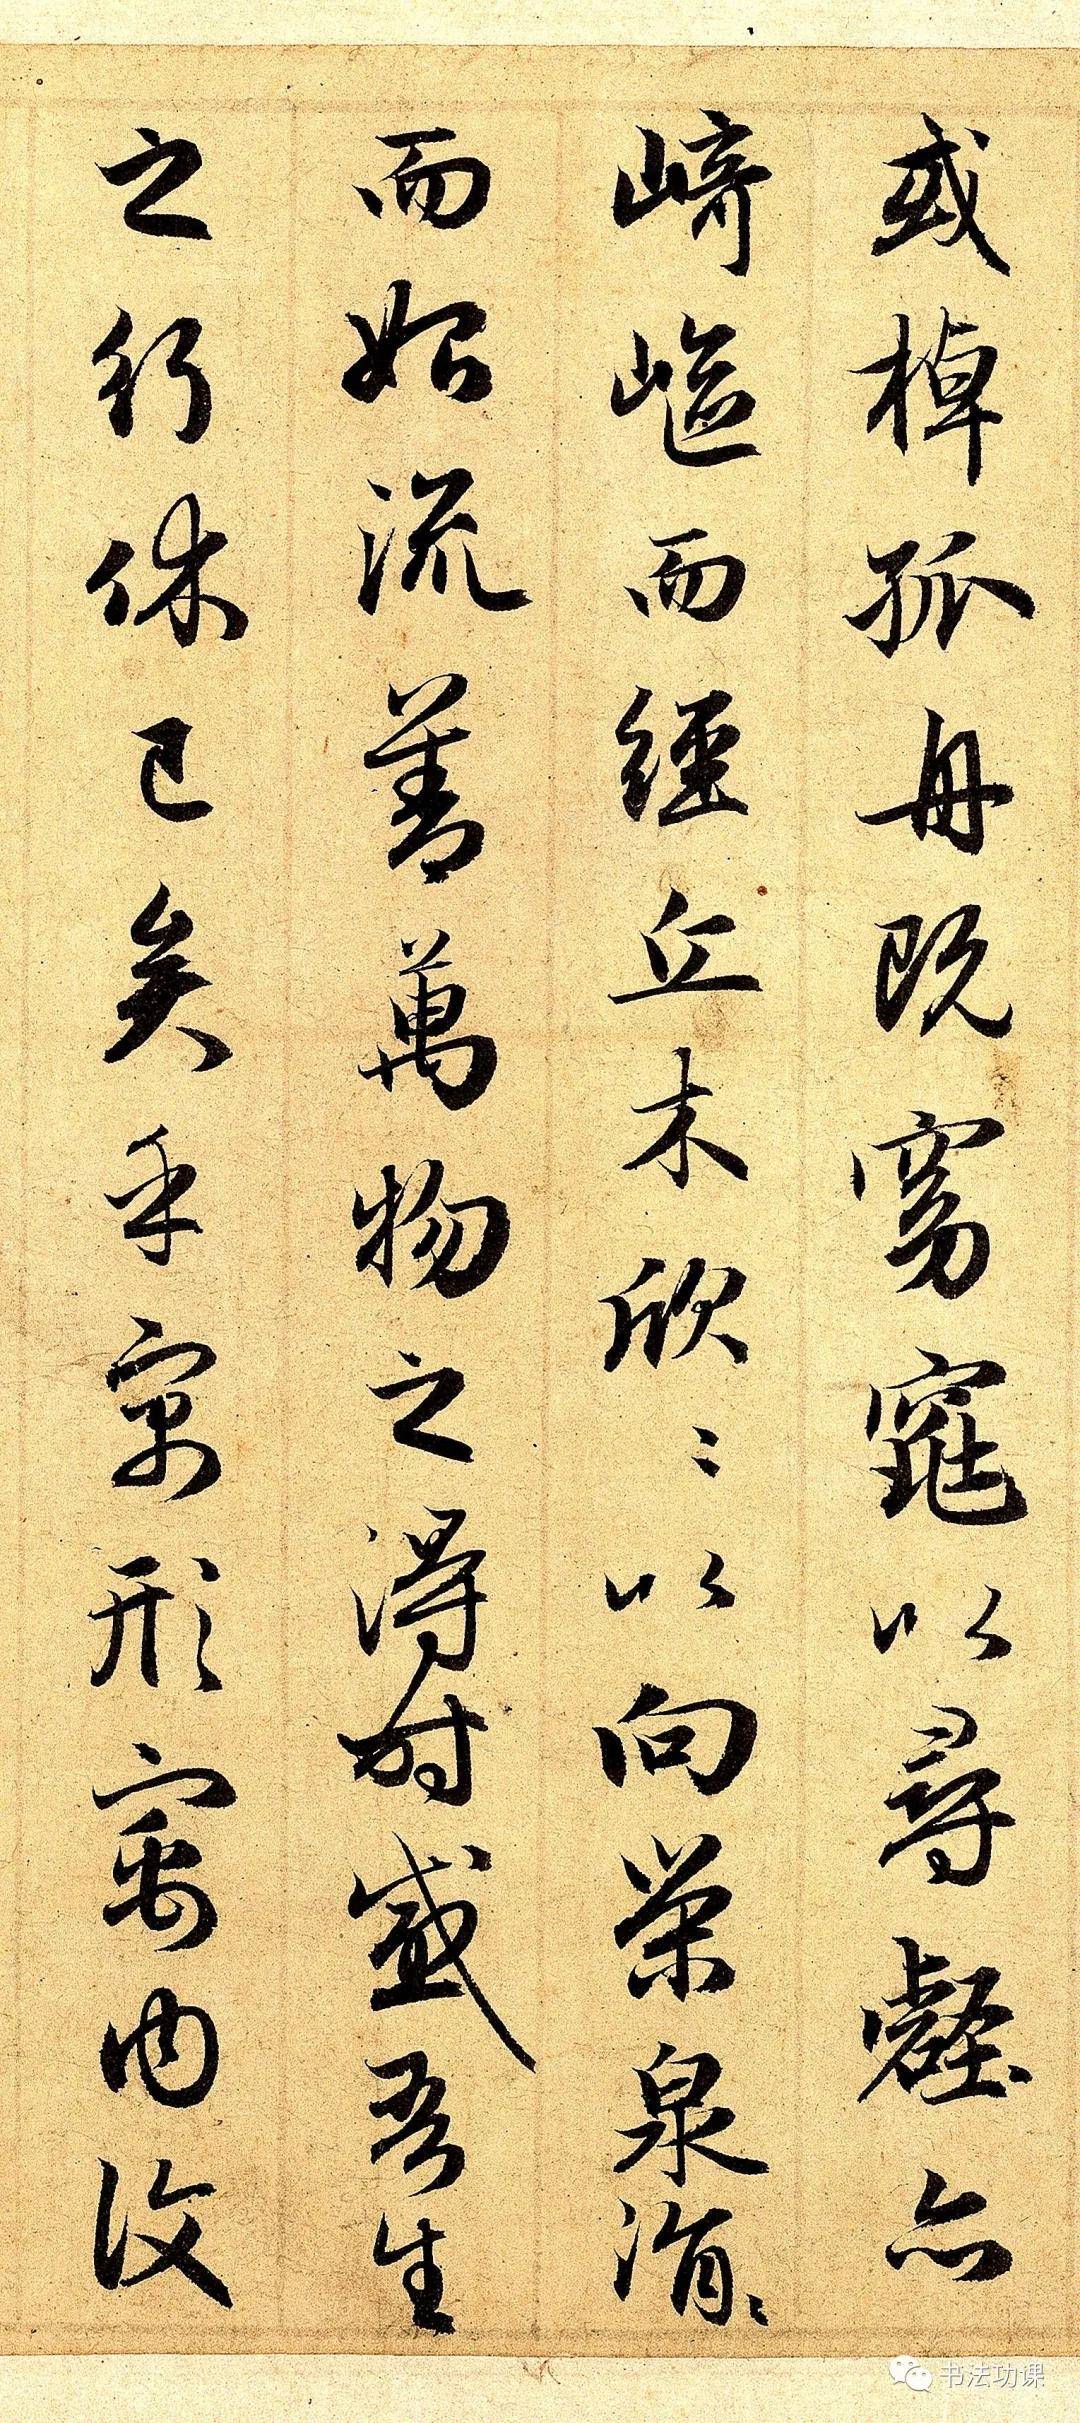 或棹孤舟既窈窕以尋壑亦
崎嶇而經丘木欣〻以向榮泉涓〻
而始流善萬物之得時感吾生
之行休已矣乎寓形㝢内復
书法功课